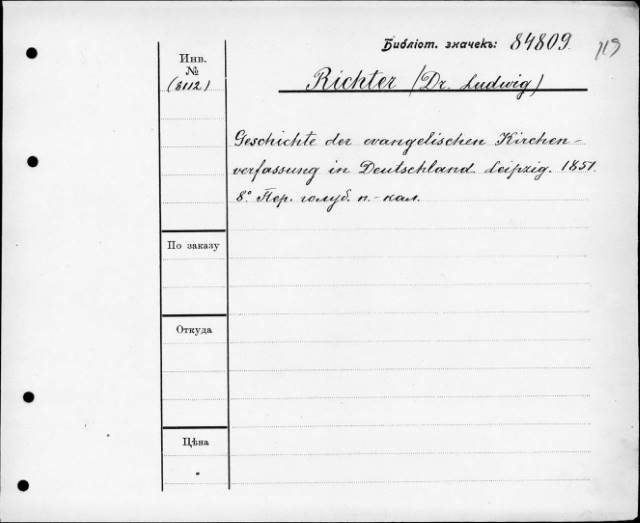 Библіот. значекъ: 84809.
Инв.
№
(8112)
Richter (Dr. Ludwig)
Geschichte der evangelischen Kirchen-
verfassung in Deutschland. Leipzig. 1851.
8° Пер. голуб. п.-кал.
По заказу
Откуда
Цѣна